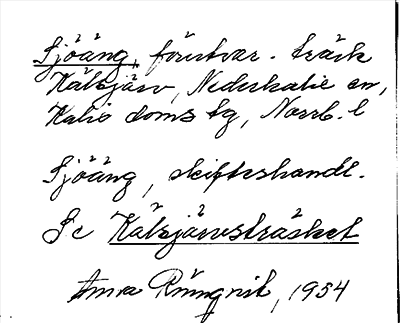 Sjöäng, försvar. träsk
Kälsjärv, Nederkalix sn,
Kalix doms tg, Norrb. l
Sjöäng, skifteshandl.
Se Kälsjärvsträsket
Anna Rönnqvist, 1954